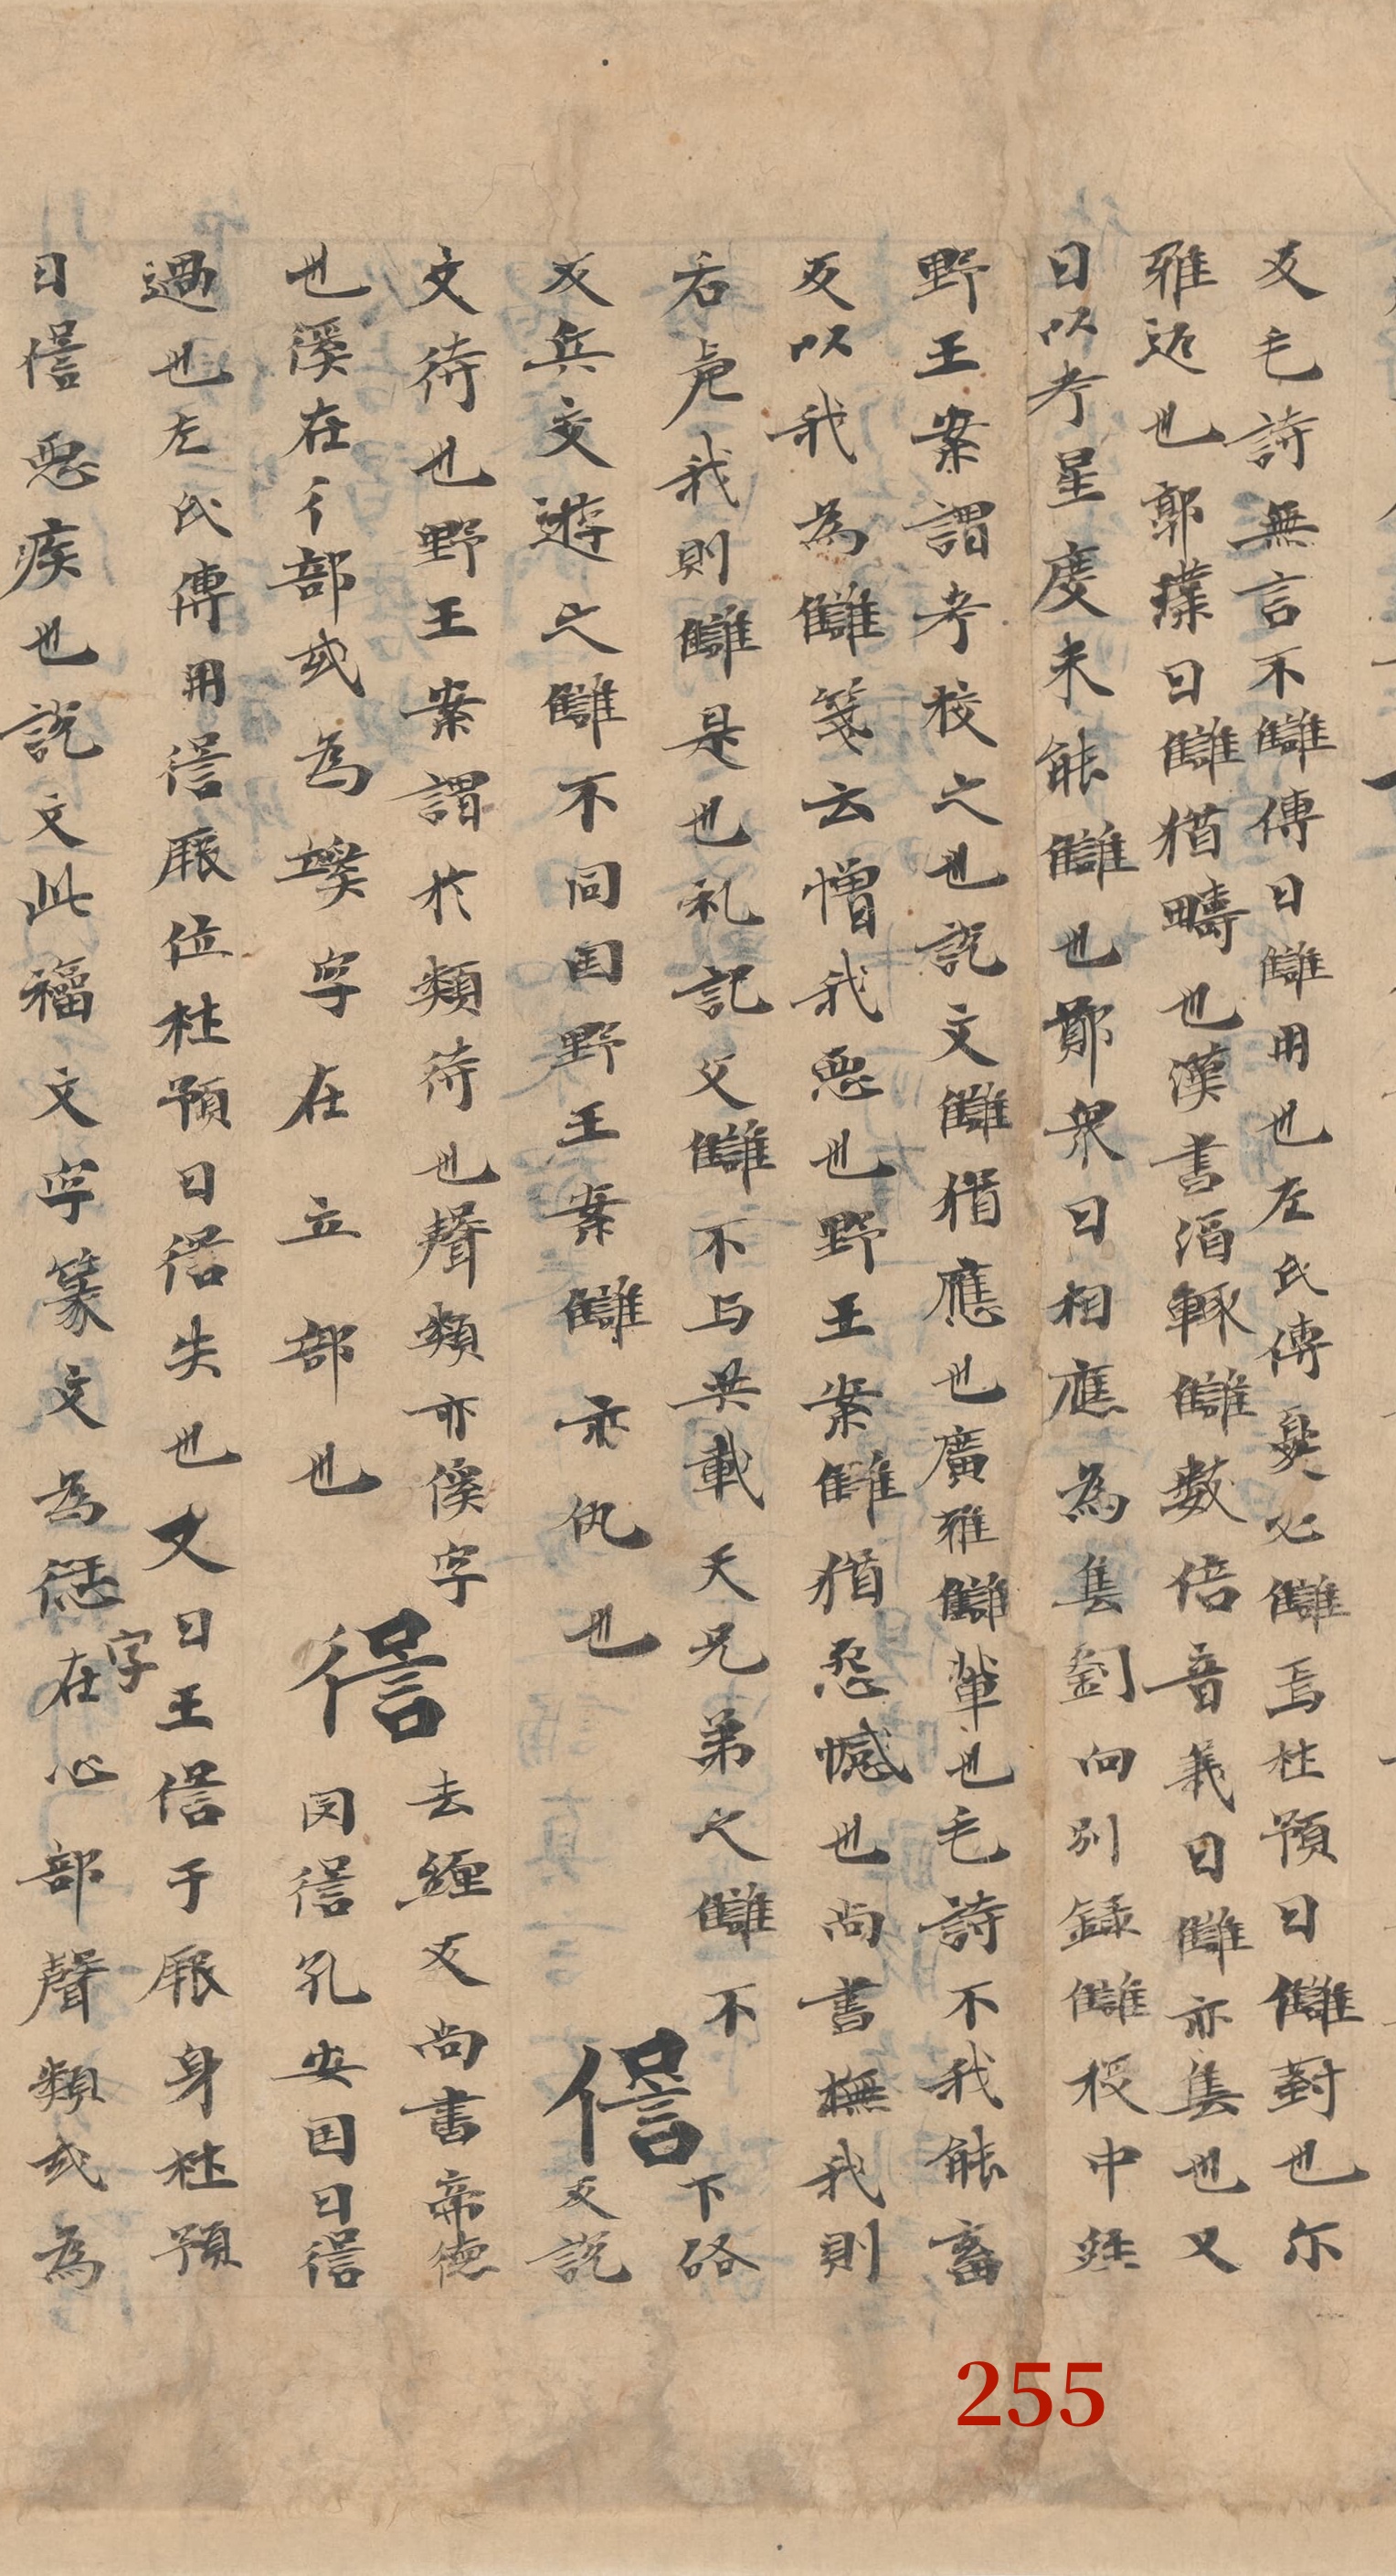 反毛詩無言不讎傳曰讎用也左氏傳㚖必讎焉杜預曰讎對也尒
雅迊也郭璞曰讎猶疇也漢書酒輙讎數倍音義曰讎亦售也又
曰以考星度未能讎也鄭衆曰相應為售劉向別録讎挍中經
野王案謂考校之也説文讎猶應也廣雅讎輩也毛詩不我能畜
反以我為讎箋云憎我惡也野王案讎猶惡憾也尚書撫我則
后虐我則讎是也礼記父讎不与共載天兄弟之讎不
下硌
反兵交遊之讎不同国野王案讎亦仇也
𠎝
反説
文待也野王案謂扵類待也聲類亦傒字
去緾反尚書帝德
也溪在彳部或為𥪡字在立部也
𠎝
罔𠎝孔安国曰𠎝
過也左氏傳用𠎝厥位杜預曰𠎝失也又曰王𠎝于厥身杜預
曰𠎝惡疾也説文此籀文字篆文為愆字在心部聲類或為
255